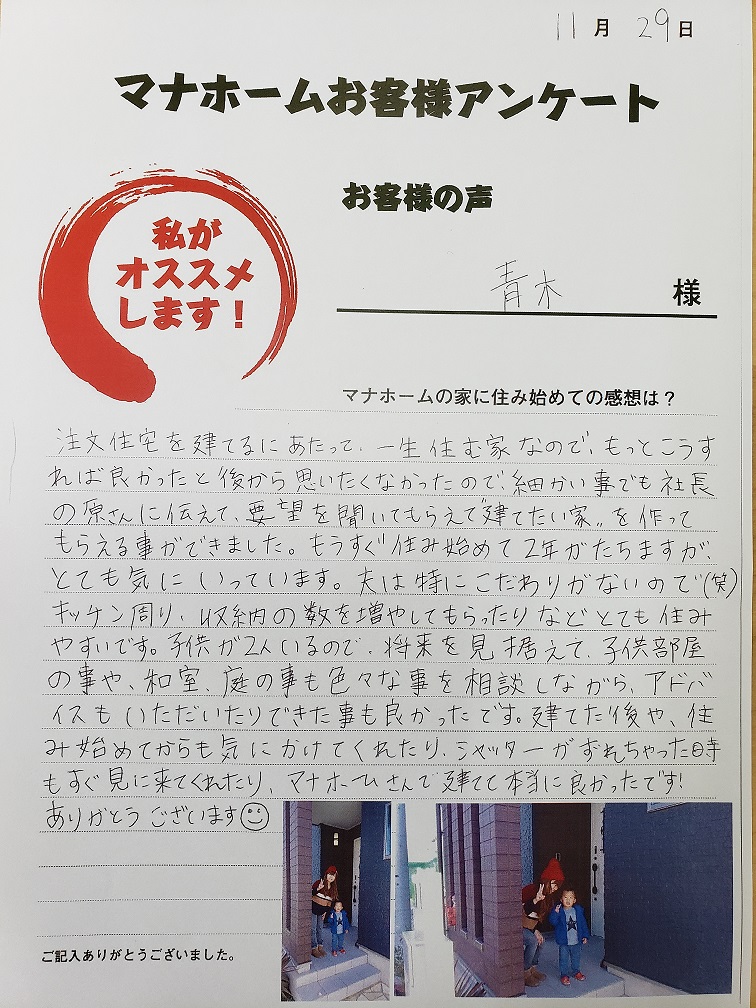 11月 29日
マナホームお客様アンケート
私が
オススメ
します！
お客様の声
青木 様
マナホームの家に住み始めての感想は？
注文住宅を建てるにあたって、一生住む家なので、もっとこうす
れば良かったと後から思いたくなかったので、細かい事でも社長
の原さんに伝えて、要望を聞いてもらえて"建てたい家"を作って
もらえる事ができました。もうすぐ住み始めて2年がたちますが、
とても気にいっています。夫は特にこだわりがないので(笑)
キッチン周り、収納の数を増やしてもらったりなどとても住み
やすいです。子供が2人いるので、将来を見据えて、子供部屋
の事や、和室、庭の事も色々な事を相談しながら、アドバ
イスもいただいたりできた事も良かったです。建てた後や、住
み始めてからも気にかけてくれたり、シャッターがずれちゃった時
もすぐ見に来てくれたり、マナホームさんで建てて本当に良かったです!
ありがとうございます☺
ご記入ありがとうございました。